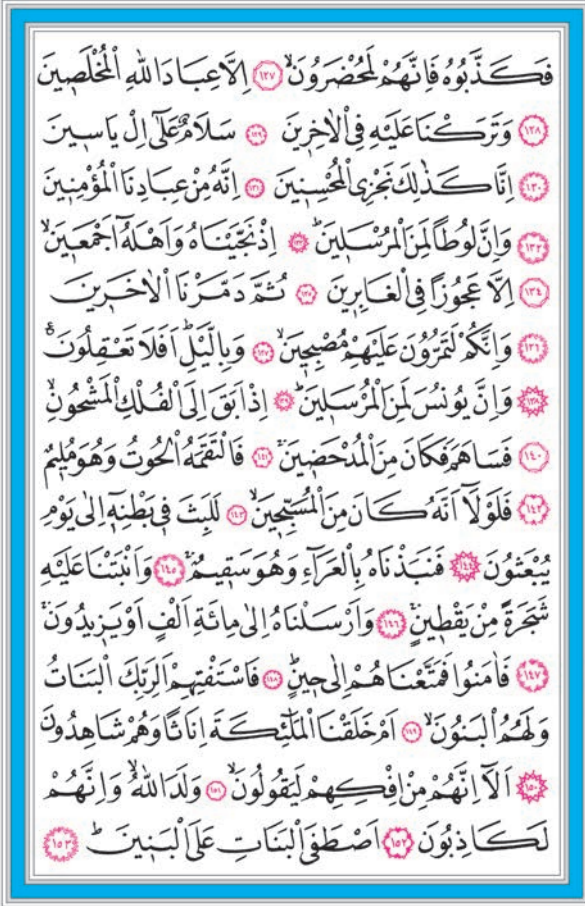 فَكَذَّبُوهُ فَاِنَّهُمْ لَمُحْضَرُونَۙ ﴿١٢٧﴾ اِلَّا عِبَادَ اللّٰهِ الْمُخْلَصٖينَ
﴿١٢٨﴾ وَتَرَكْنَا عَلَيْهِ فِي الْاٰخِرٖينَ ﴿١٢٩﴾ سَلَامٌ عَلٰٓى اِلْ يَاسٖينَ
﴿١٣٠﴾ اِنَّا كَذٰلِكَ نَجْزِي الْمُحْسِنٖينَ ﴿١٣١﴾ اِنَّهُ مِنْ عِبَادِنَا الْمُؤْمِنٖينَ
﴿١٣٢﴾ وَاِنَّ لُوطًا لَمِنَ الْمُرْسَلٖينَؕ ﴿١٣٣﴾ اِذْ نَجَّيْنَاهُ وَاَهْلَهُٓ اَجْمَعٖينَۙ
﴿١٣٤﴾ اِلَّا عَجُوزًا فِي الْغَابِرٖينَ ﴿١٣٥﴾ ثُمَّ دَمَّرْنَا الْاٰخَرٖينَ
﴿١٣٦﴾ وَاِنَّكُمْ لَتَمُرُّونَ عَلَيْهِمْ مُصْبِحٖينَۙ ﴿١٣٧﴾ وَبِالَّيْلِؕ اَفَلَا تَعْقِلُونَࣖ
﴿١٣٨﴾ وَاِنَّ يُونُسَ لَمِنَ الْمُرْسَلٖينَؕ ﴿١٣٩﴾ اِذْ اَبَقَ اِلَى الْفُلْكِ الْمَشْحُونِۙ
﴿١٤٠﴾ فَسَاهَمَ فَكَانَ مِنَ الْمُدْحَضٖينَۚ ﴿١٤١﴾ فَالْتَقَمَهُ الْحُوتُ وَهُوَ مُلٖيمٌ
﴿١٤٢﴾ فَلَوْلَٓا اَنَّهُ كَانَ مِنَ الْمُسَبِّحٖينَۙ ﴿١٤٣﴾ لَلَبِثَ فٖي بَطْنِهٖٓ اِلٰى يَوْمِ
يُبْعَثُونَ ﴿١٤٤﴾ فَنَبَذْنَاهُ بِالْعَرَٓاءِ وَهُوَ سَقٖيمٌۚ ﴿١٤٥﴾ وَاَنْبَتْنَا عَلَيْهِ
شَجَرَةً مِنْ يَقْطٖينٍۚ ﴿١٤٦﴾ وَاَرْسَلْنَاهُ اِلٰى مِائَةِ اَلْفٍ اَوْ يَزٖيدُونَۚ
﴿١٤٧﴾ فَاٰمَنُوا فَمَتَّعْنَاهُمْ اِلٰى حٖينٍؕ ﴿١٤٨﴾ فَاسْتَفْتِهِمْ اَلِرَبِّكَ الْبَنَاتُ
وَلَهُمُ الْبَنُونَۙ ﴿١٤٩﴾ اَمْ خَلَقْنَا الْمَلٰٓئِكَةَ اِنَاثًا وَهُمْ شَاهِدُونَ
﴿١٥٠﴾ اَلَٓا اِنَّهُمْ مِنْ اِفْكِهِمْ لَيَقُولُونَۙ ﴿١٥١﴾ وَلَدَ اللّٰهُۙ وَاِنَّهُمْ
لَكَاذِبُونَ ﴿١٥٢﴾ اَصْطَفَى الْبَنَاتِ عَلَى الْبَنٖينَؕ ﴿١٥٣﴾